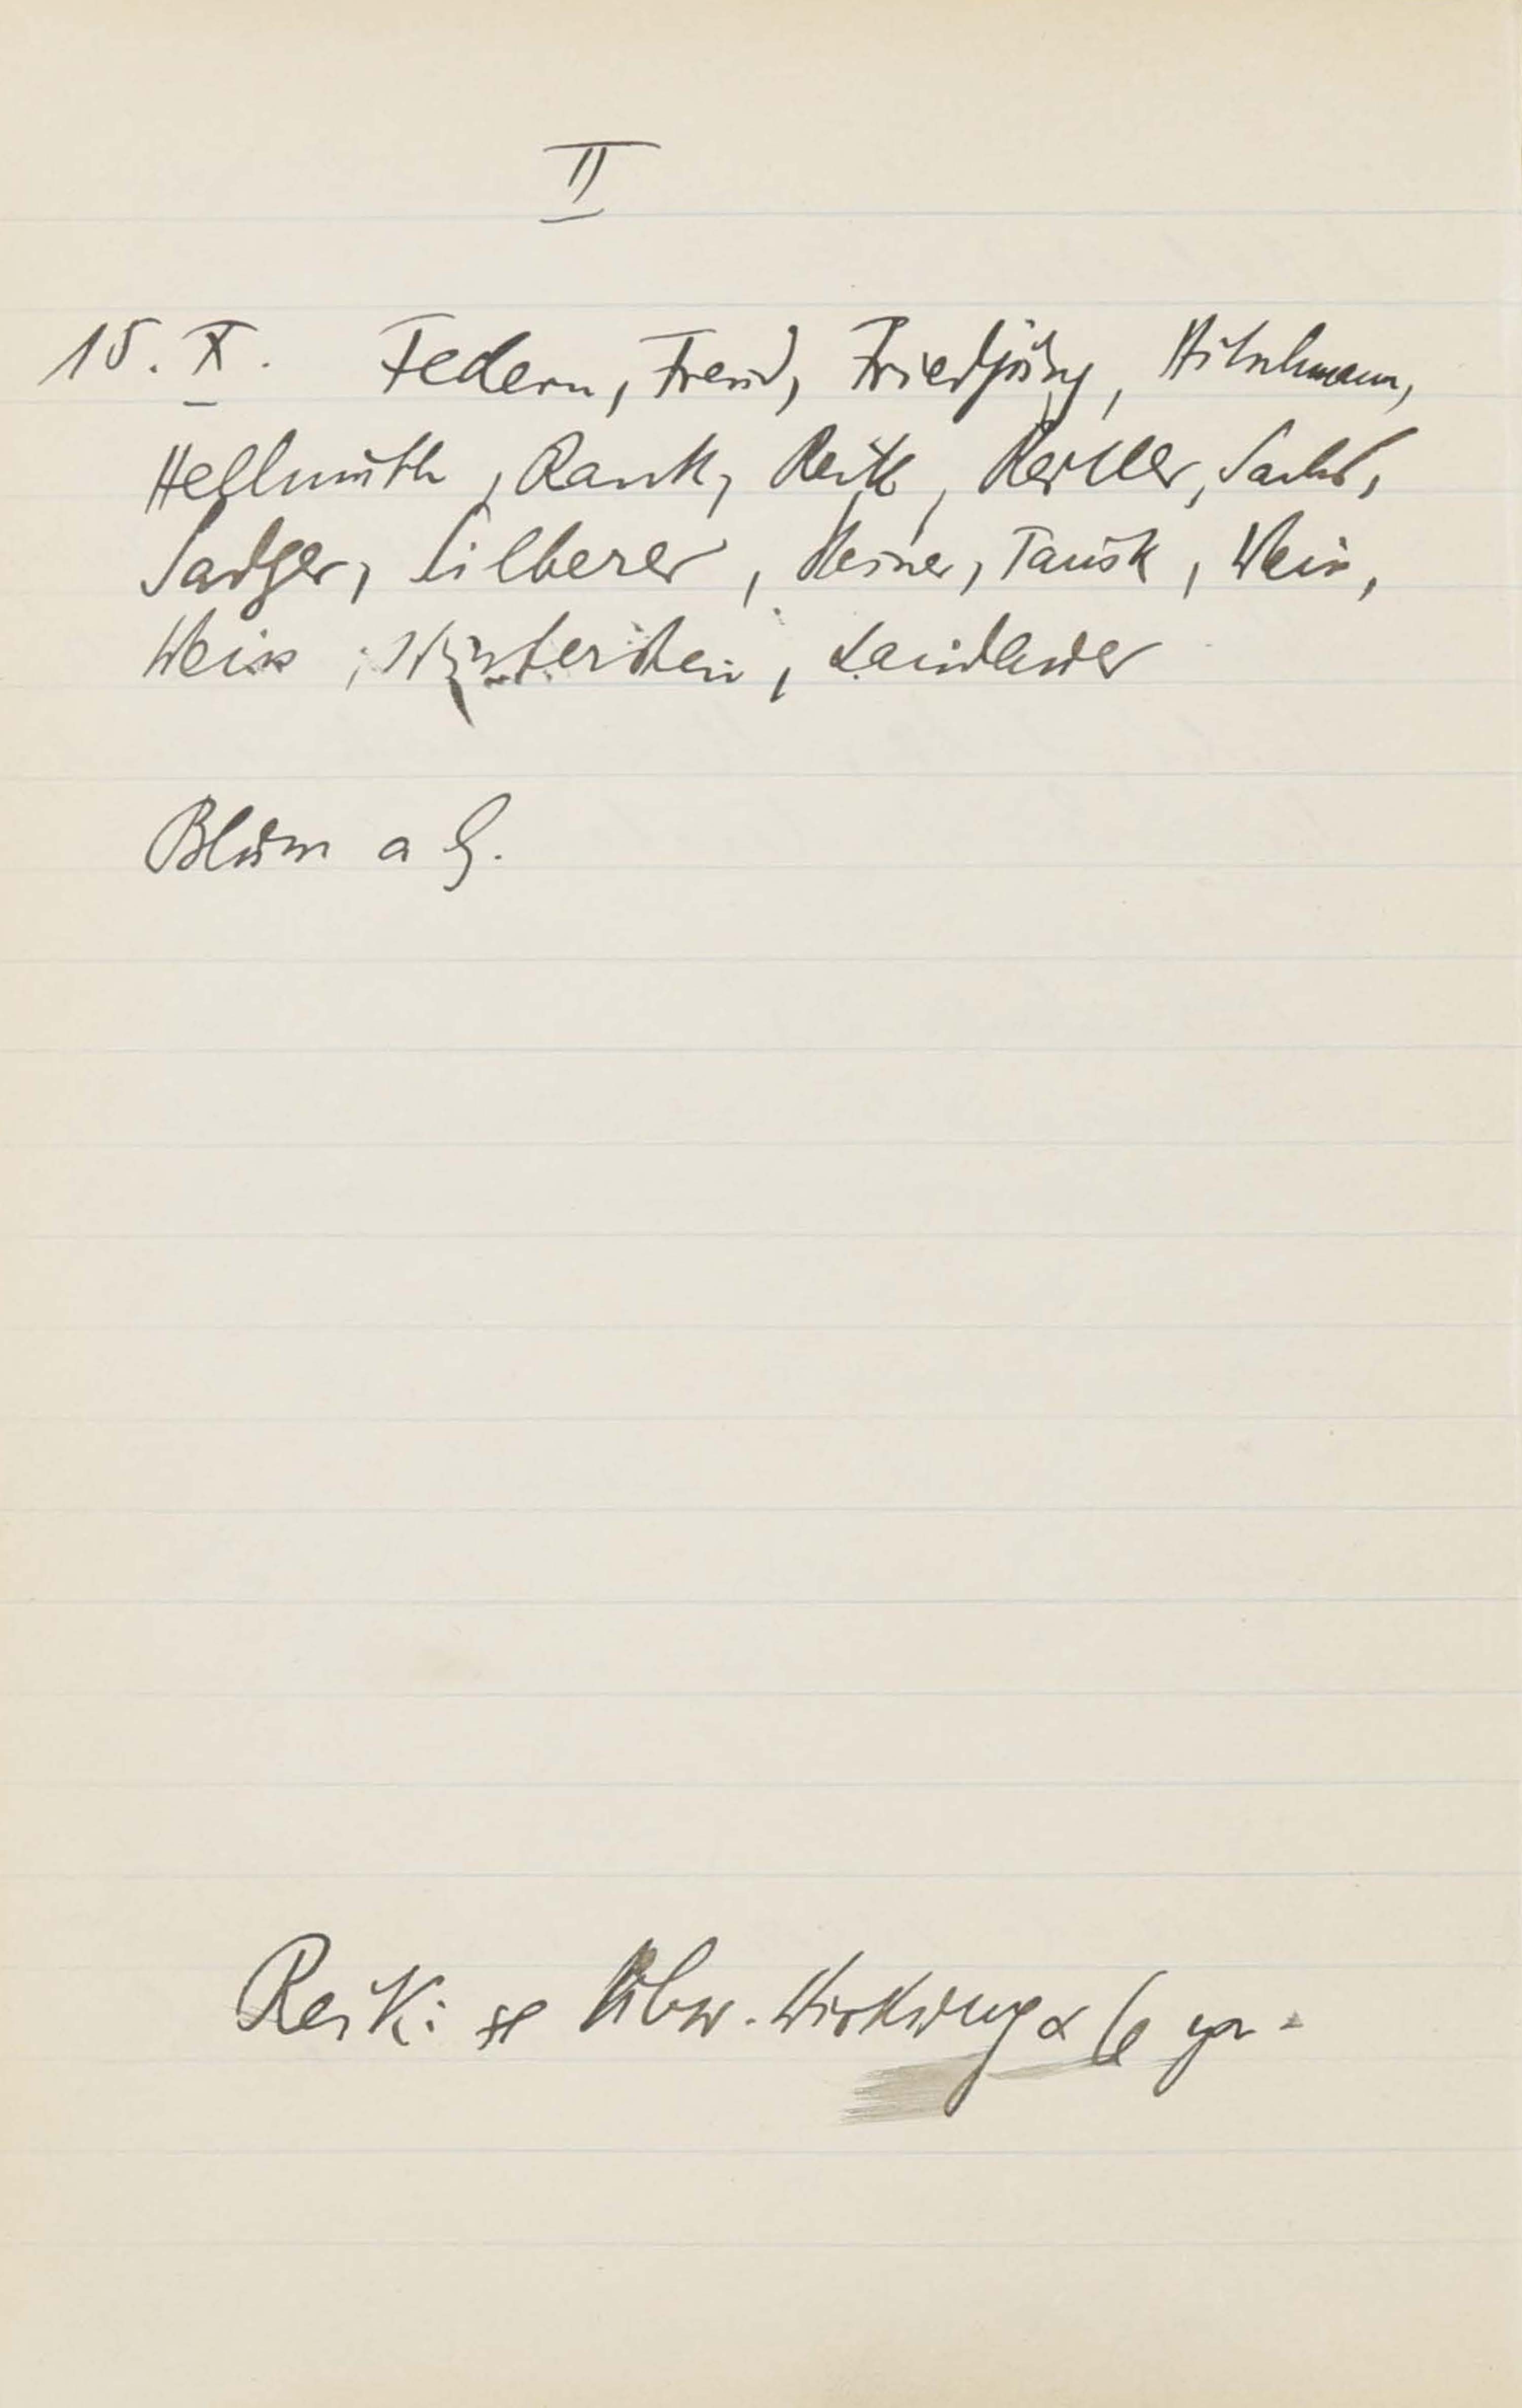 II
15. X. Federn, Freud, Friedjung, Hitschmann,
Hellmuth, Rank, Reik, Reitler, Sachs,
Sadger, Silberer, Steiner, Tausk,
Weiss, Winterstein, Landauer
Blum a G.
Reik: Wirkung